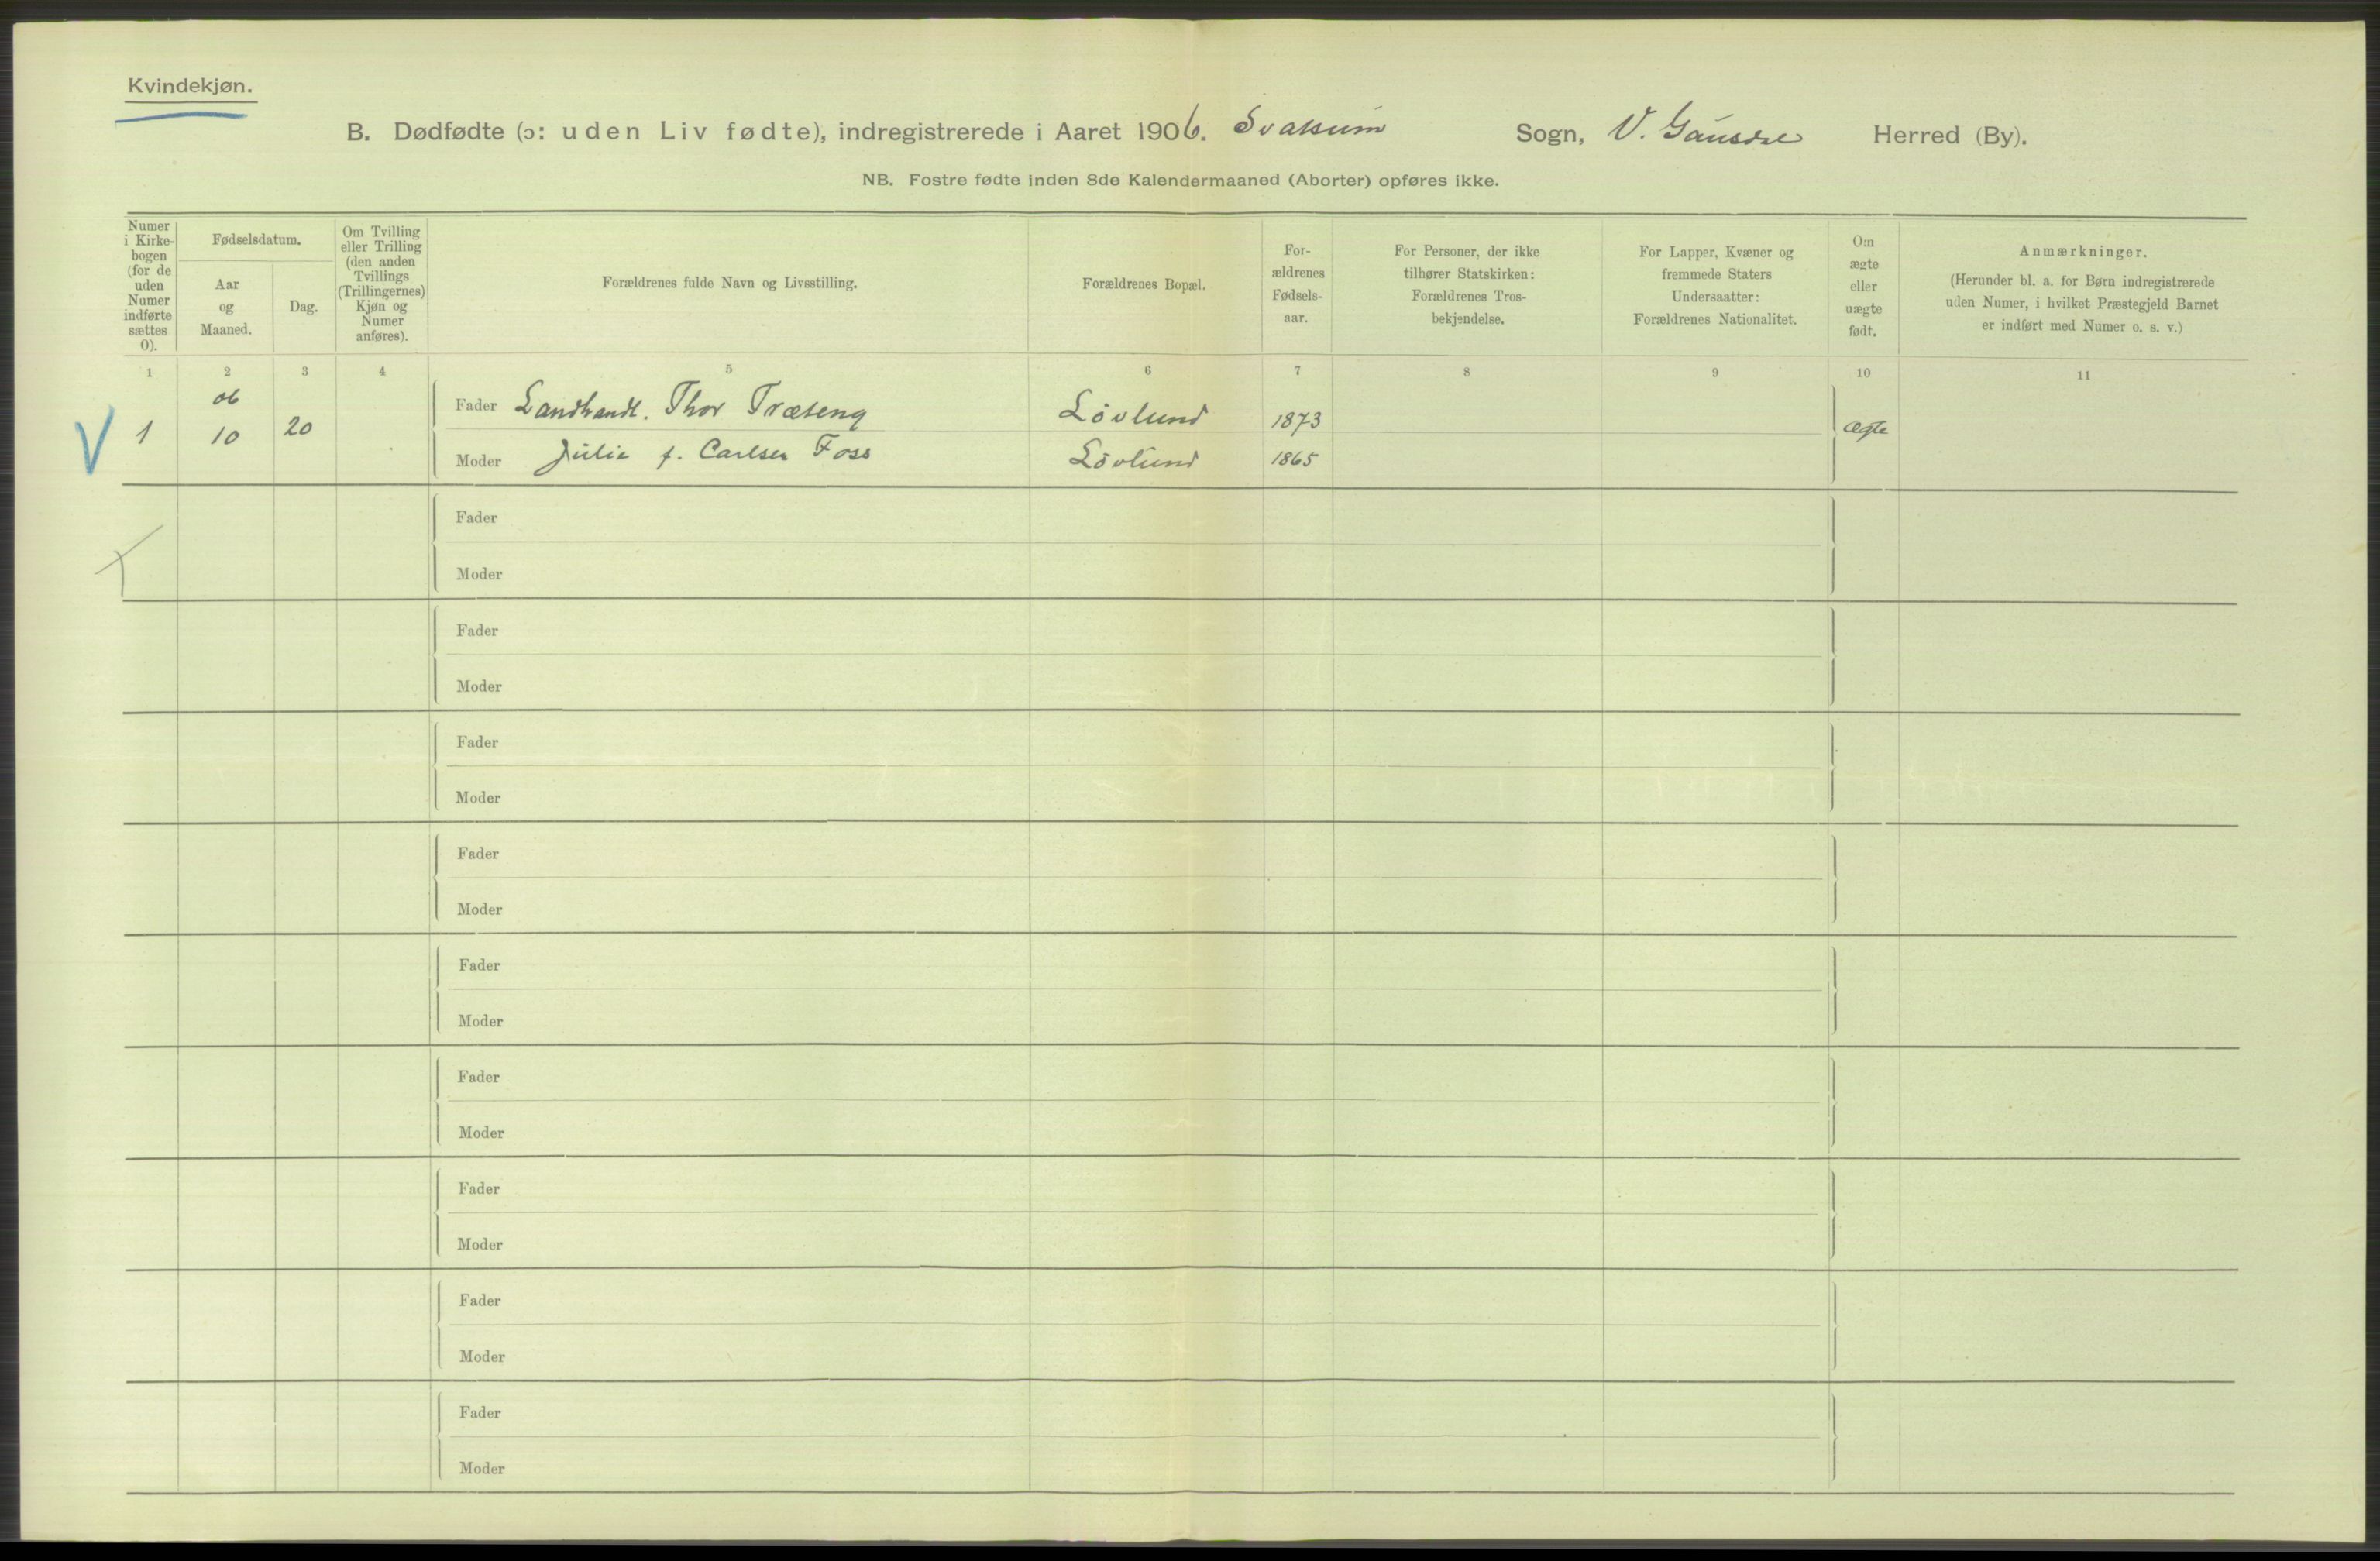 Kvindekjøn.
B. Dødfødte (ɔ: uden Liv fødte), indregistrerede i Aaret 1906. Svatsum Sogn, V. Gausdal Herred (By).
NB. Fostre fødte inden 8de Kalendermaaned (Aborter) opføres ikke.
Numer i Kirke-bogen (for de uden Numer indførte sættes 0).
Fødselsdatum.
Aar og Maaned.
Dag.
Om Tvilling eller Trilling (den anden Tvillings (Trillingernes) Kjøn og Numer anføres).
Forældrenes fulde Navn og Livsstilling.
Forældrenes Bopæl.
For-ældrenes Fødsels-aar.
For Personer, der ikke tilhører Statskirken: Forældrenes Tros-bekjendelse.
For Lapper, Kvæner og fremmede Staters Undersaatter: Forældrenes Nationalitet.
Om ægte eller uægte født.
Anmærkninger.
(Herunder bl. a. for Børn indregistrerede uden Numer, i hvilket Præstegjeld Barnet er indført med Numer o. s. v.)
1 2 3 4 5 6 7 8 9 10 11
06
V 1 10 20 Fader Landhandl. Thor Træteng Løvlund 1873 ægte
Moder Julie f. Carlsen Foss Løvlund 1865
Fader
Moder
Fader
Moder
Fader
Moder
Fader
Moder
Fader
Moder
Fader
Moder
Fader
Moder
Fader
Moder
Fader
Moder